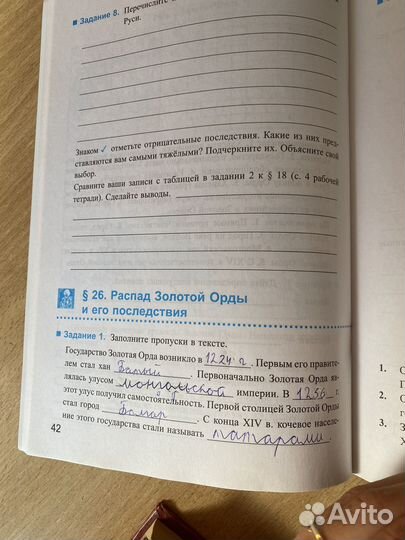 Задание 8. Перечислите
Руси.
Знаком ✓ отметьте отрицательные последствия. Какие из них пред-
ставляются вам самыми тяжёлыми? Подчеркните их. Объясните свой
выбор.
Сравните ваши записи с таблицей в задании 2 к § 18 (с. 4 рабочей
тетради). Сделайте выводы.
§ 26. Распад Золотой Орды
и его последствия
Задание 1. Заполните пропуски в тексте.
Государство Золотая Орда возникло в 1224 г. Первым его правите-
лем стал хан Батый. Первоначально Золотая Орда яв-
лялась улусом монгольской империи. В 1256 г.
этот улус получил самостоятельность. Первой столицей Золотой Орды
стал город Болгар. С конца XIV в. кочевое населе-
ние этого государства стали называть татарами.
42
1.
2.
3.
Avito